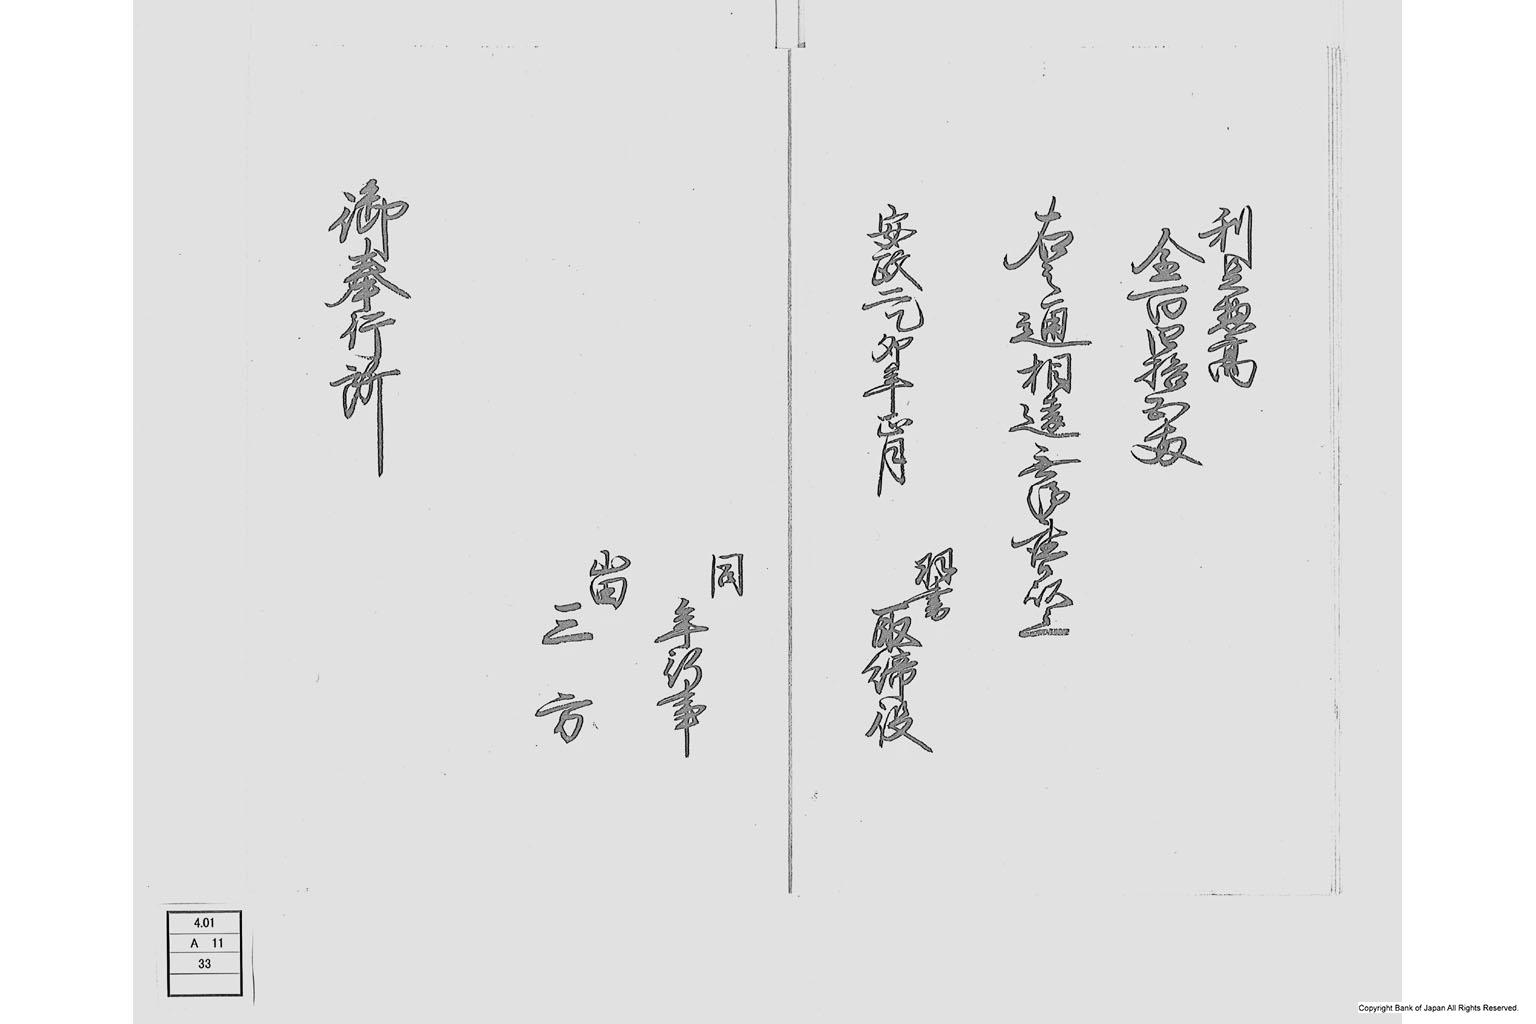 利足惣高
金百拾両
右之通相違無御座候以上
安政二乙卯年正月
取締役
同
年行事
三方
御奉行所
4.01
A 11
33
Copyright Bank of Japan All Rights Reserved.